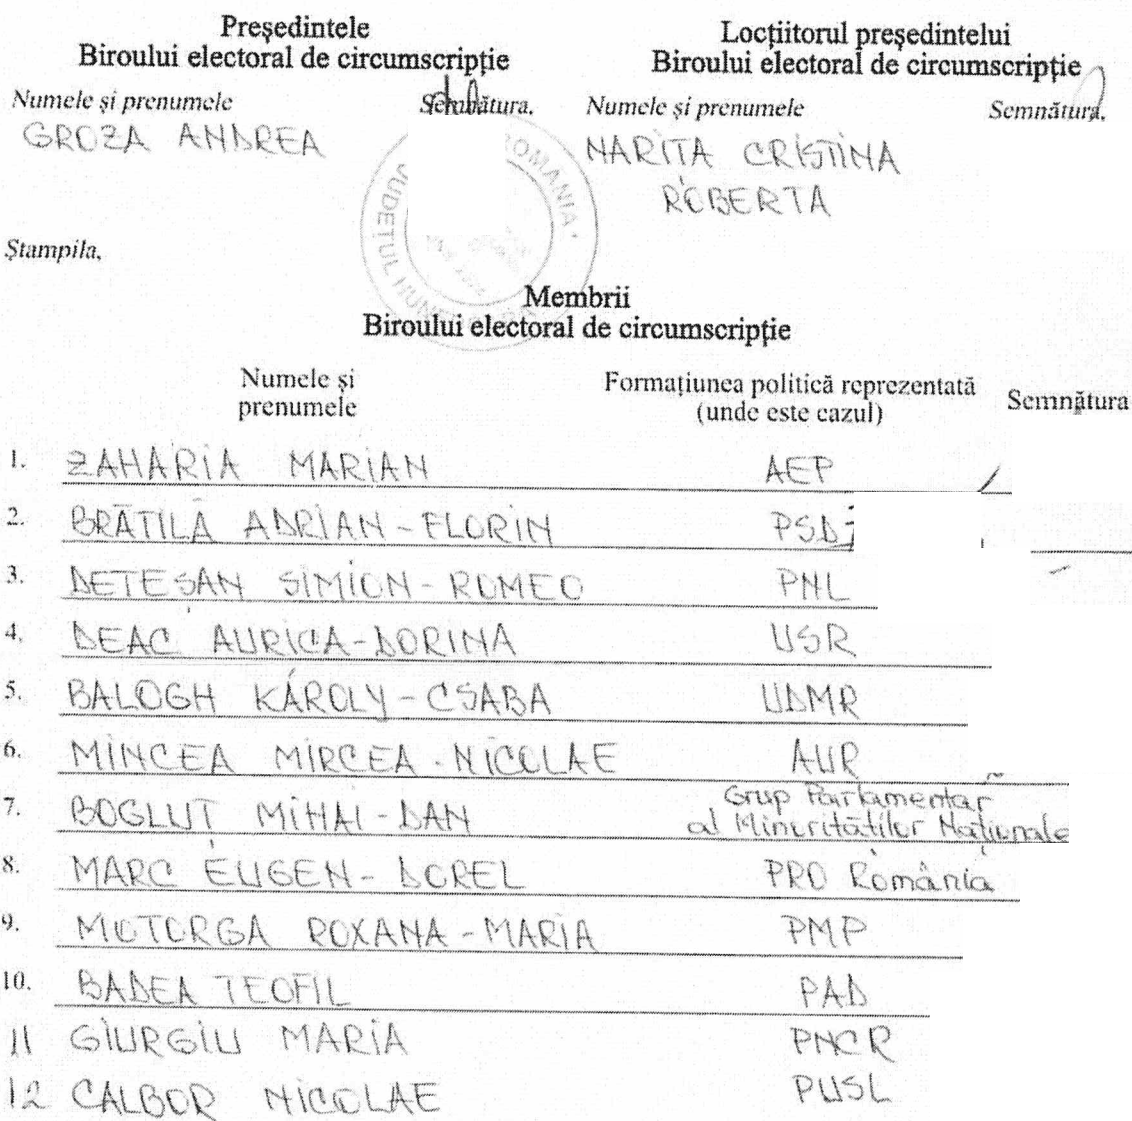 Președintele
Biroului electoral de circumscripție
Numele și prenumele
Semnătura,
GROZA ANDREA
Locțiitorul președintelui
Biroului electoral de circumscripție
Numele și prenumele
Semnătura,
NARITA CRISTINA
ROBERTA
ROMANIA
JUDEȚUL HUNEDOARA
Ștampila,
Membrii
Biroului electoral de circumscripție
Numele și
prenumele
Formațiunea politică reprezentată
(unde este cazul)
Semnătura
1. ZAHARIA MARIAN AEP
2. BRĂTILĂ ADRIAN-FLORIN PSD
3. DETEȘAN SIMION-ROMEO PNL
4. DEAC AURICA-DORINA USR
5. BALOGH KÁROLY-CSABA UDMR
6. MINCEA MIRCEA-NICOLAE AUR
7. BOGLUȚ MIHAI-DAN Grup Parlamentar
al Minorităților Naționale
8. MARC EUGEN-DOREL PRO România
9. MOTORGA ROXANA-MARIA PMP
10. BADEA TEOFIL PAD
11 GIURGIU MARIA PNCR
12 CALBOR NICOLAE PUSL